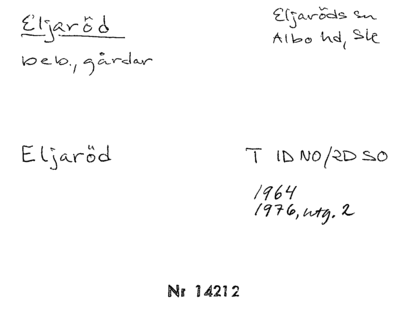 Eljaröd
Eljaröds sn
Albo hd, Ske
beb., gårdar
Eljaröd
T 1D NO/2D SO
1964
1976, utg. 2
Nr 14212